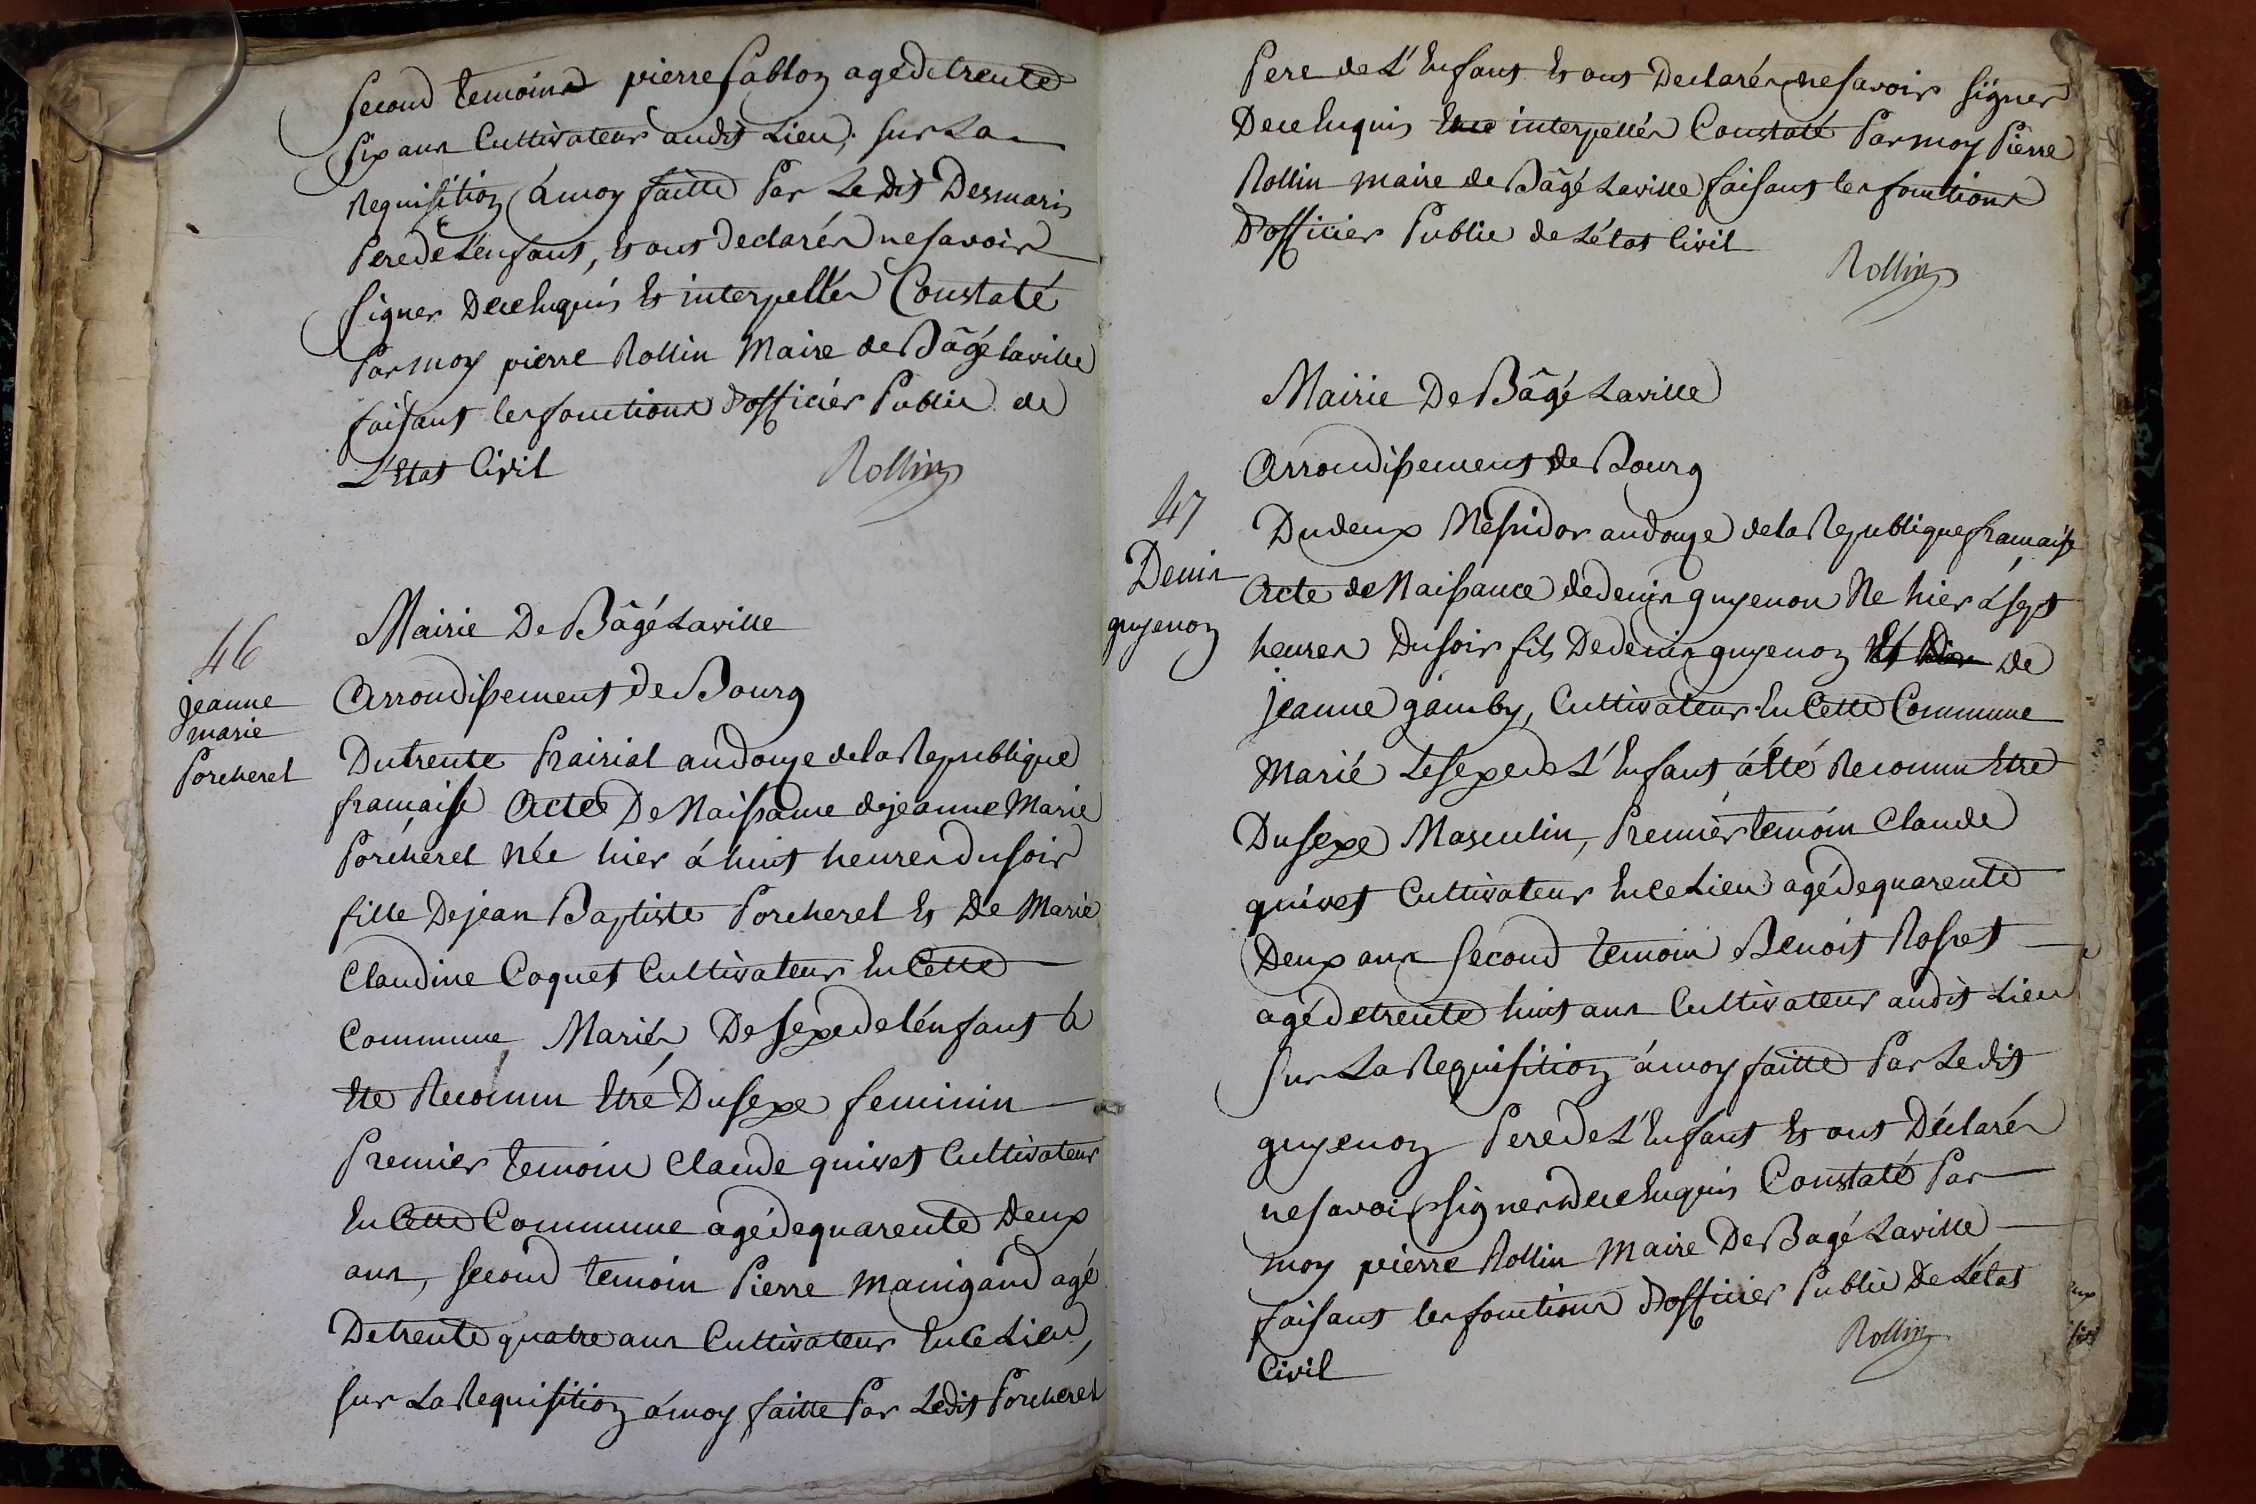 second temoins pierre sablon agé de trente
six ans Cultivateur audit Lieu, sur La
requisition á moy faitte Par Le dit Desmaris
Pere de L'enfant, et ont declarés ne savoir
signer De ce Enquis Et interpellés Constaté
Par moy pierre Rollin Maire de Bâgé laville
faisant les fonctions d'officiér Public de
L'Etat Civil
Rollin
46
jeanne
marie
Porcherel
Mairie De Bâgé Laville
Arrondissement de Bourg
Du trente Prairial an douze de la Republique
française Acte De Naissance de jeanne Marie
Porcherel née hier á huit heures du soir
fille De jean Baptiste Porcherel Et De Marie
Claudine Coquet Cultivateur En Cette
Commune Mariés De sexe de lénfant a
Ete Reconnu Etré Du sexe feminin
Premier temoin Claude quivet Cultivateur
En Cette Commune agé de quarente Deux
ans, second temoin Pierre Manigand agé
De trente quatre ans Cultivateur En Ce Lieu,
sur La Requisition á moy faitte Par Ledit Porcherel
Pere de L'Enfant Et ont Declarés ne savoir signer
De ce Enquis interpellés Constaté Par moy Pierre
Rollin maire de Bâgé Laville faisant les fonctions
D'officier Public de L'état Civil
Rollin
Mairie De Bâgé Laville
Arrondissement de Bourg
47
Denis
guyenon
Du deux Messidor an douze de la Republique française
Acte de Naissance de denis guyenon Ne hier á sept
heures Du soir fils De denis guyenon De
jeanne gamby, Cultivateur En Cette Commune
Marié Le sexe de L'Enfant á Eté Reconnu Etre
Du sexe Masculin, Premiér temoin Claude
quivet Cultivateur En Ce Lieu agé de quarente
Deux ans second temoin Benoit Rosset
agé de trente huit ans Cultivateur audit Lieu
sur La Requisition á moy faitte Par Le dit
guyenon Pere de L'Enfant Et ont Déclarés
ne savoir signer de ce Enquis Constaté Par
moy pierre Rollin Maire De Bagé Laville
faisant les fonctions d'officier Public De L'état
Civil
Rollin